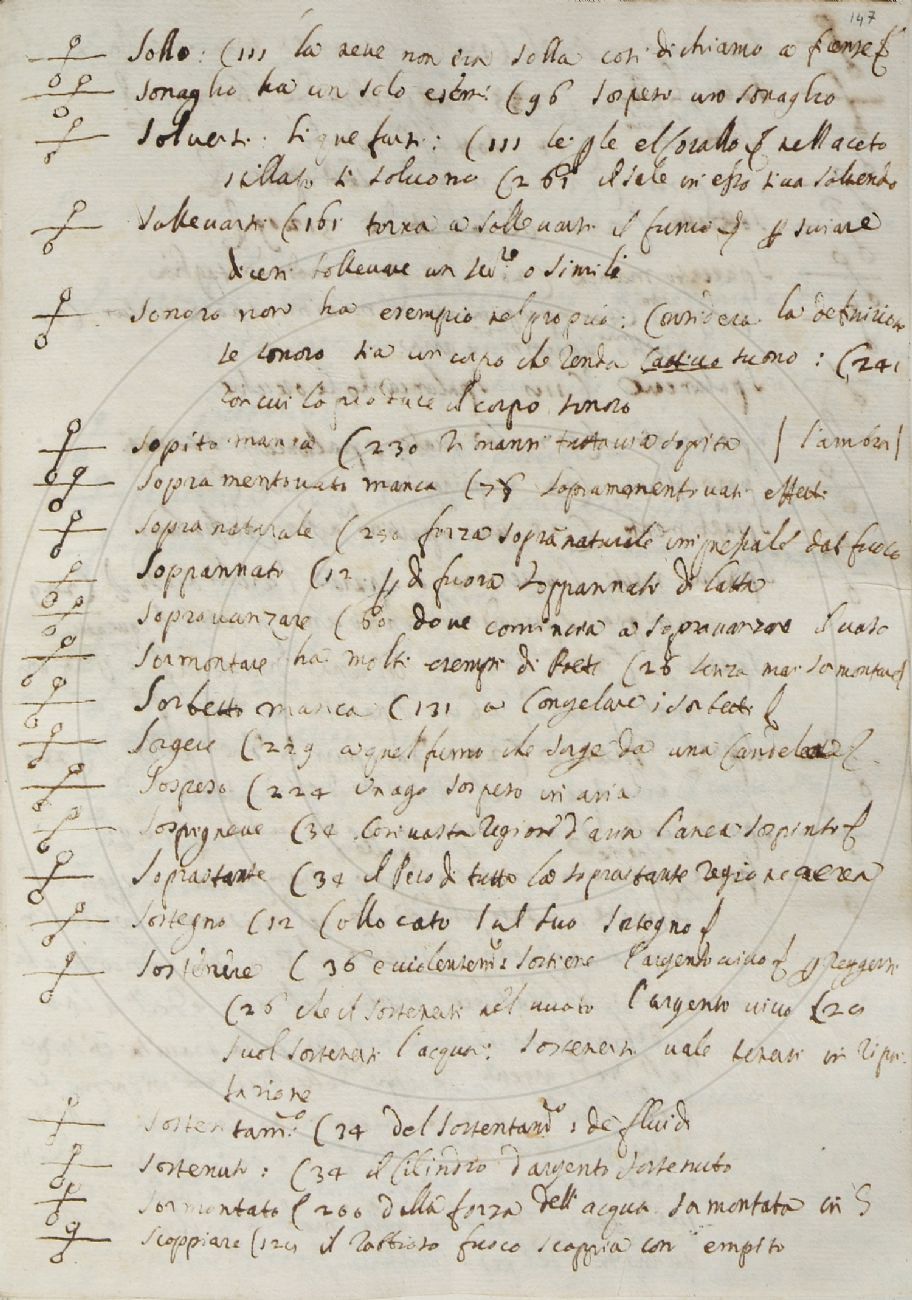 147
Sollo: (111 la neve non era solla così dichiamo a
Sonaglio ha un solo (96 sospeso uno sonaglio
Solversi: liquefarsi: (111 le ple el corallo nell aceto
stillato si solvono (261 il sale in esso si va solvendo
Sollevarsi (161 torna a sollevarsi il fumo
dicesi sollevare un o simile
Sonoro non ha esempio nel proprio: Considera la definizione
se sonoro sia un corpo che renda suono: (241
con cui lo produce il corpo sonoro
Sopito manca (230 rimansi tuttavia sopita | l'ambra |
Sopramentovati manca (78 sopramentovati effetti
Sopranaturale (250 forza sopranaturale impressale dal fuoco
Soppannato (12 di fuora soppannato di latta
Sopravanzare (60 dove comincia a sopravanzare il vaso
Sormontare ha molti esempi di Poeti (26 senza mai sormontare
Sorbetti manca (131 a congelare i sorbetti
Sorgere (229 a quel fumo che sorge da una candela
Sospeso (224 Un ago sospeso in aria
Sospignere (34 Così vasta regione d'aria l'anea sospinto
Soprastante (34 il Peso di tutta la soprastante regione aerea
Sostegno (12 Collocato sul suo sostegno
Sostenere (36 sostiene l'argento vivo reggere
(26 che il sostenersi nel vuoto l'argento vivo (29
suol sostenersi l'acqua: sostenersi vale tenersi in ripu-
tazione
Sostentam.to (34 del sostentam.to de fluidi
Sostenuto: (34 il Cilindro d'argento sostenuto
Sormontato (200 dalla forza dell' acqua sormontata in S
Scoppiare (129 il fuoco scoppia con empito